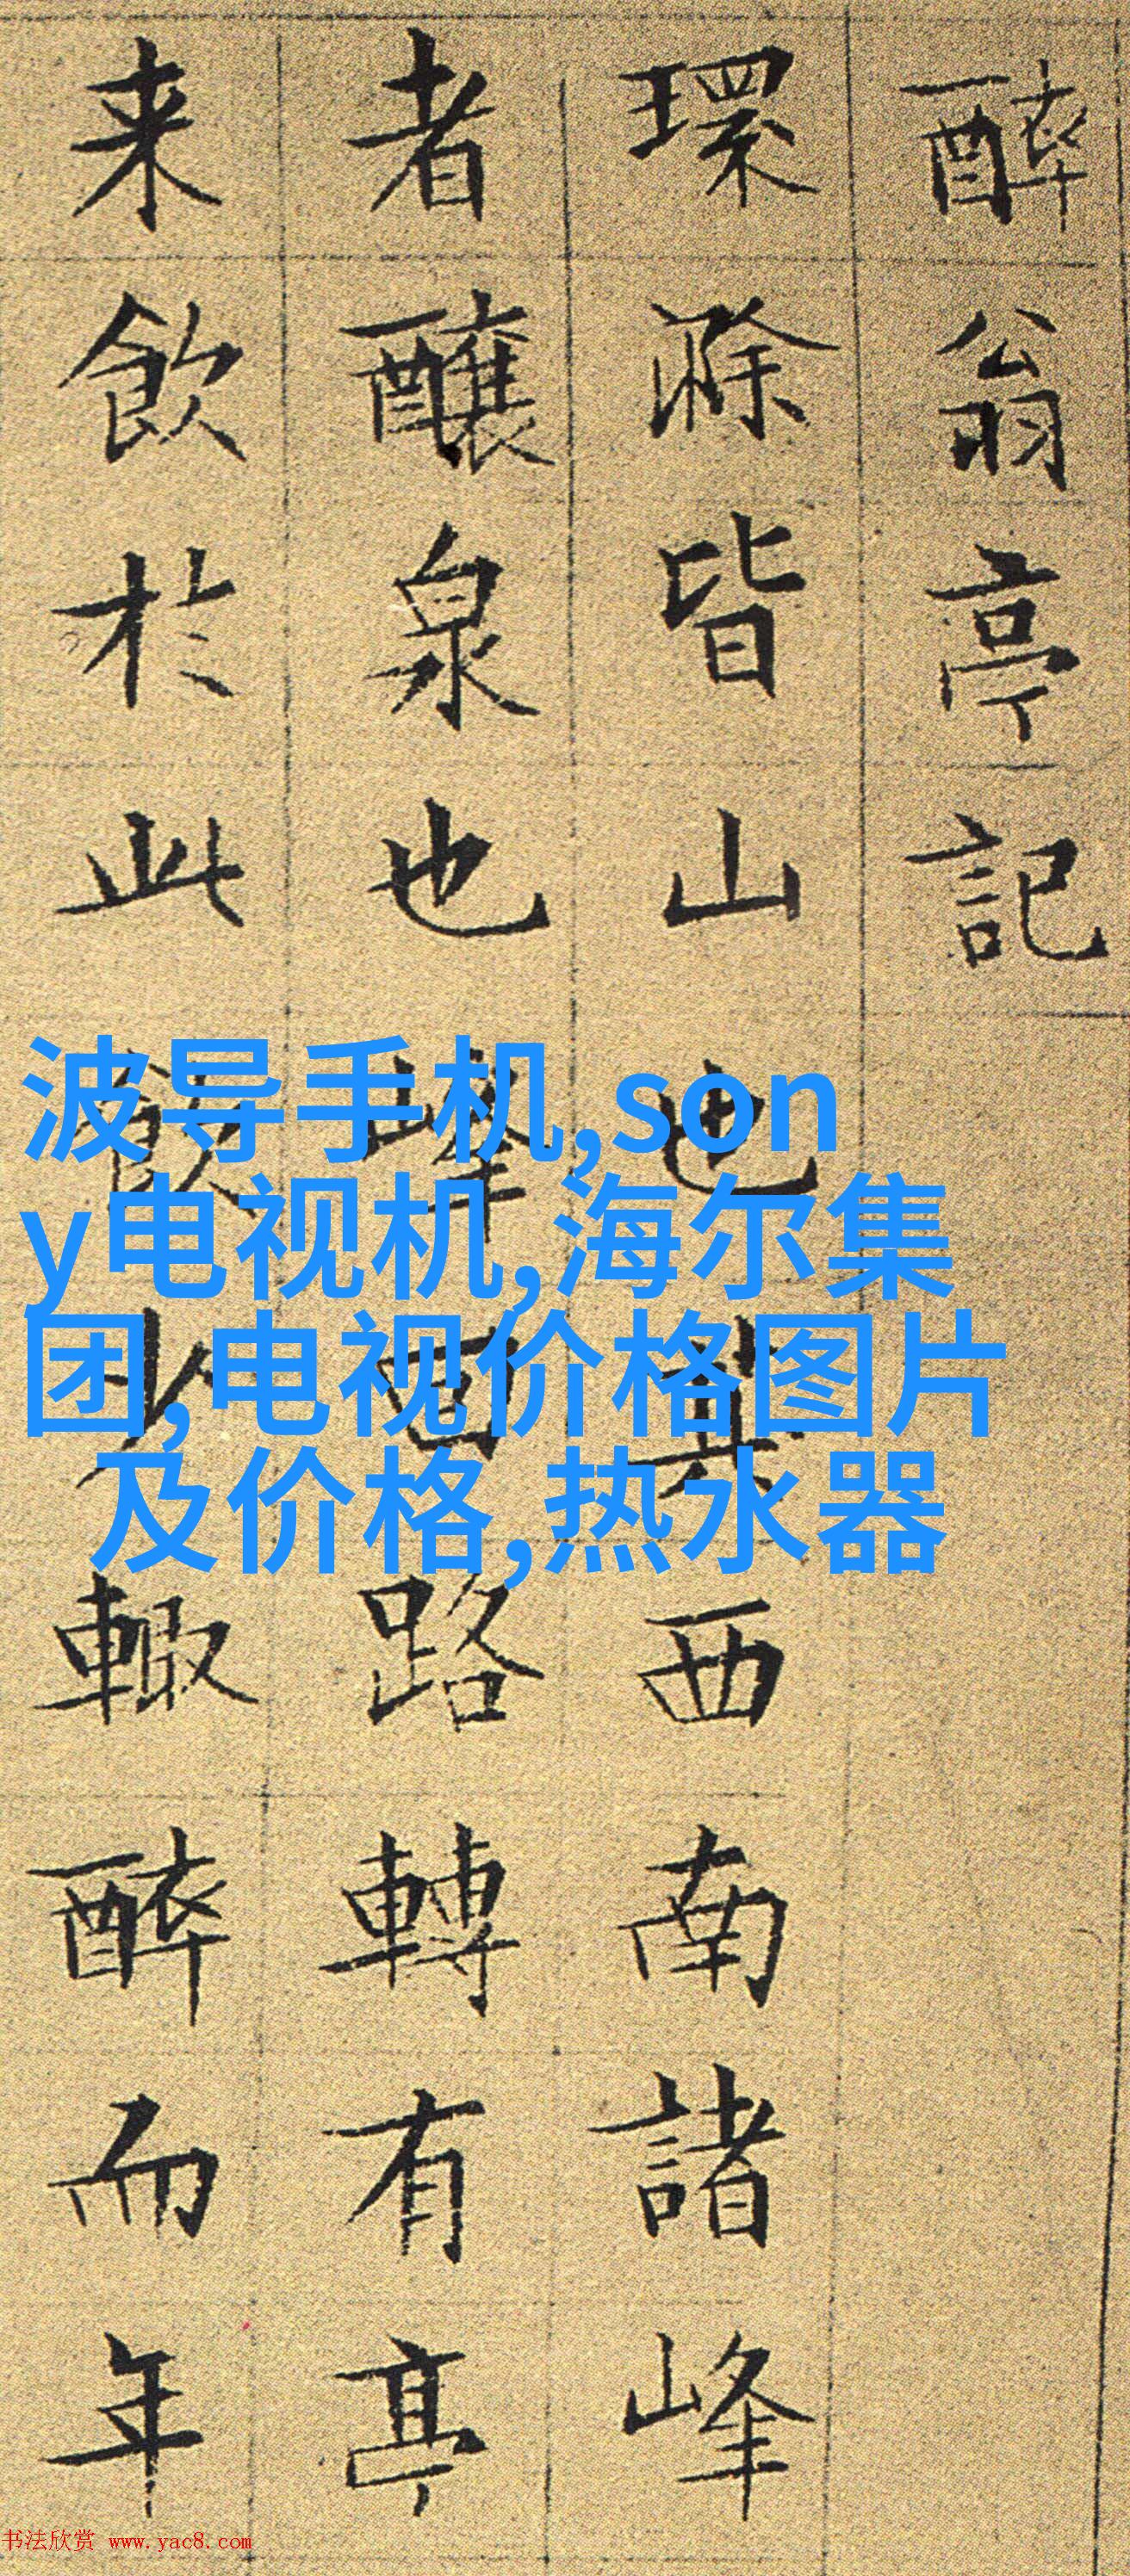 醉翁亭記
環滁皆山也其西南諸峰
者釀泉也峰回路轉有亭
来飲於此飲少輙醉而年
波导手机,son
y电视机,海尔集
团,电视价格图片
及价格,热水器
书法欣赏 www.yac8.com